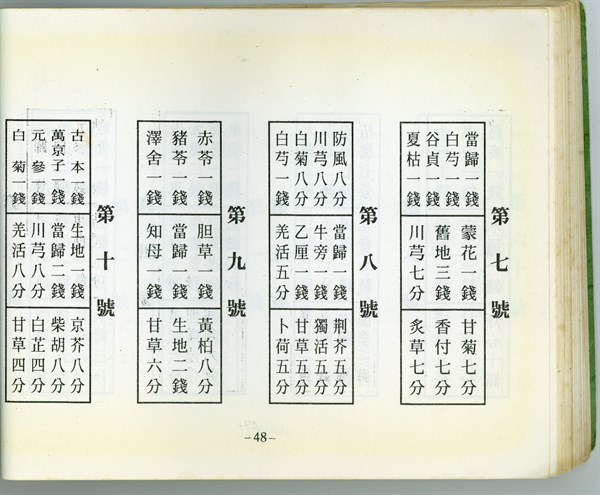 第七號
當歸一錢
白芍一錢
谷貞一錢
夏枯一錢
蒙花一錢
舊地三錢
川芎七分
甘菊七分
香付七分
炙草七分
第八號
防風八分
川芎八分
白菊八分
白芍一錢
當歸一錢
牛旁一錢
乙厘一錢
羌活五分
荆芥五分
獨活五分
甘草五分
卜荷五分
第九號
赤苓一錢
豬苓一錢
澤舍一錢
胆草一錢
當歸一錢
知母一錢
黃柏八分
生地二錢
甘草六分
第十號
古本一錢
萬京子一錢
元參一錢
白菊一錢
生地一錢
當歸二錢
川芎八分
羌活八分
京芥八分
柴胡八分
白芷四分
甘草四分
-48-